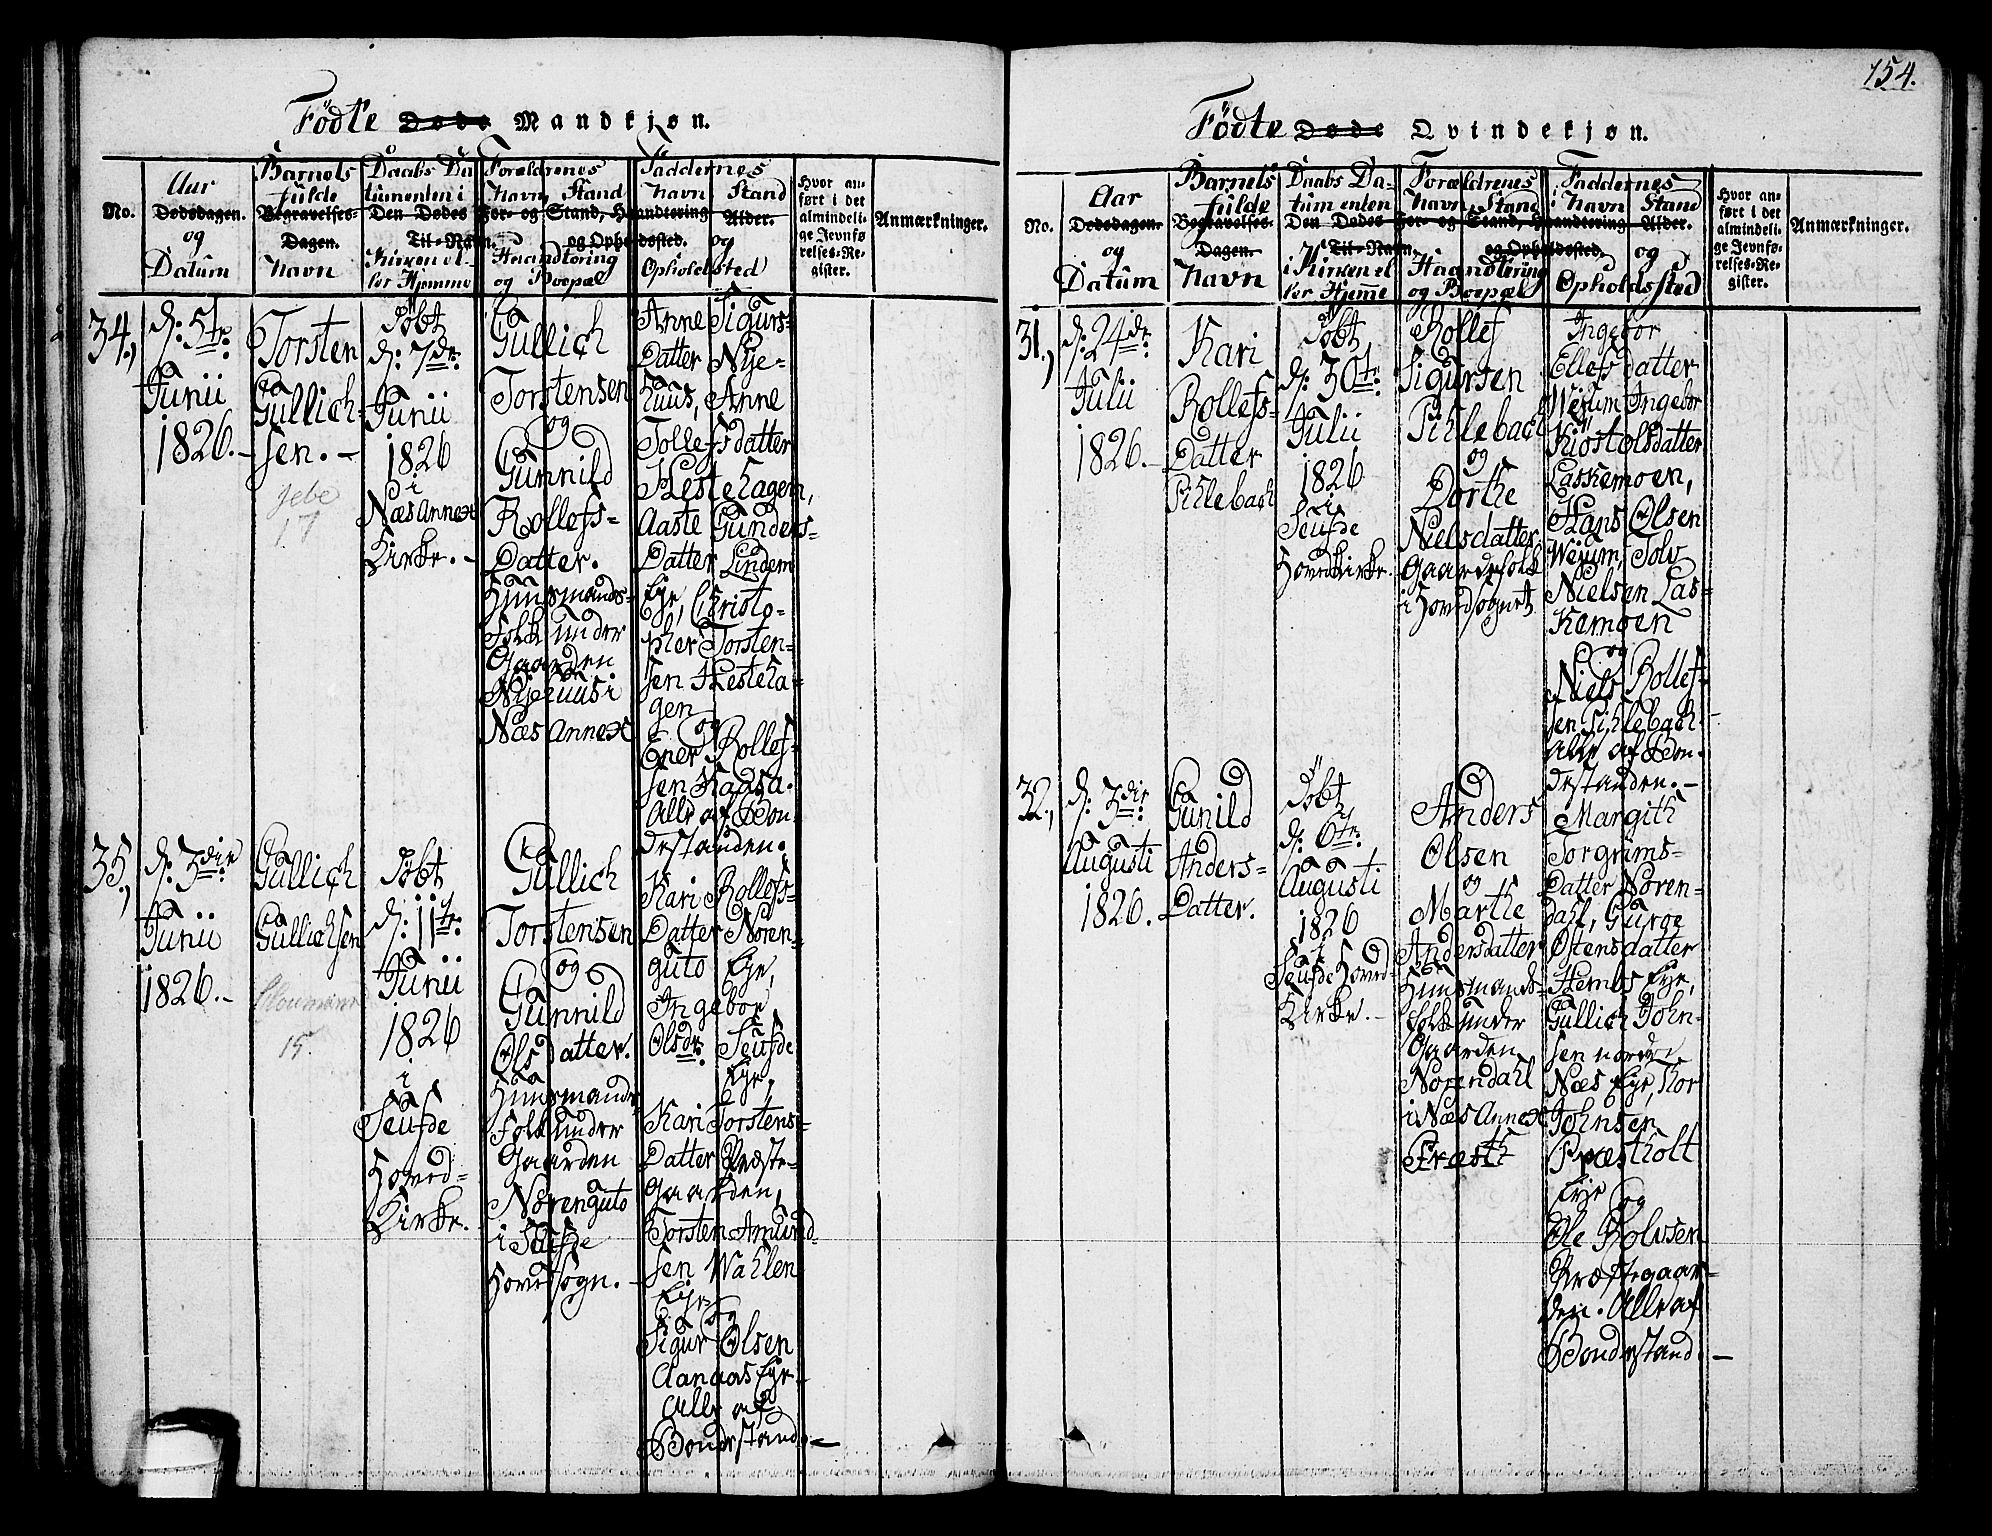 154.
Födte Døde Mandkjøn.
No.
Aar
Dødsdagen.
og
Datum
Barnets
fulde
Begravelses-
Dagen.
Navn
Daabs Da
tumenten i
Den Dødes
Til-Navn.
Kirken el-
ler Hjemme
Forældrenes
Navn Stand
For- og Stand, Haandtering
og Opholdssted.
Haandtering
og Boepæl
Faddernes
Navn Stand
Alder.
og
Opholdsted
Hvor an-
ført i det
almindeli-
ge Jevnfø
relses-Re-
gister.
Anmærkninger.
34,
d: 5te
Junii
1826.-
Torsten
Gullich-
sen.-
17
Döbt
d: 7de
Junii
1826
i
Næs Annex
Kirke.-
Gullich
Torstensen
og
Gunnild
Rollefs-
Datter.
Huusmands-
folk under
Gaarden
Nyehuus i
Næs Annex
Anne Sigurs-
Datter Nye-
huus, Anne
Tollefsdatter
Hestehagen,
Aaste Gunders-
Datter Lindem
Eye, Christo-
pher Torsten-
sen Hesteha-
gen
og
Ener Rollef-
sen Kaasa.
Alle af Bon-
destanden.
35,
d: 3die
Junii
1826.-
Gullich
Gullichsen
15.
Döbt
d: 11te
Junii
1826
i
Seufde
Hoved-
Kirke.
Gullich
Torstensen
og
Gunnild
Olsdatter.
Huusmands
Folk under
Gaarden
Norenguto
i Seufde
Hovedsogn.
Kari Rollefs-
Datter Noren-
guto Eye,
Ingebor
Olsdr Seufde
Eye,
Kari Torstens-
Datter Præste-
Gaarden,
Torsten Amund-
sen Wahlen
Eye
og
Sigur Olsen
Aanaas Eye
Alle af
Bondestand.-
Födte Døde Qvindekjøn.
No.
Aar
Dødsdagen.
og
Datum
Barnets
fulde
Begravelses-
Dagen.
Navn
Daabs Da-
tum enten
Den Dødes
Til-Navn.
i Kirken el
ler Hjemme
Forældrenes
Navn, Stand
For- og Stand, Haandtering
og Opholdssted.
Haandtering
og Boepæl
Faddernes
Navn Stand
Alder.
og
Opholdssted
Hvor an-
ført i det
almindeli-
ge Jevnfø-
relses-Re-
gister.
Anmærkninger.
31,
d: 24de
Julii
1826.-
Kari
Rollefs-
Datter
Pihlebach
Döbt
d: 30te
Julii
1826
i
Seufde
Hovedkirke.
Rollef
Sigursen
Pihlebach
og
Dorthe
Nielsdatter
Gaardefolk
i Hovedsognet
Ingebor
Ellefsdatter
Werum Ingebor
Kiostolsdatter
Laskemoen,
Hans Olsen
Werum, Tolv
Nielsen Las-
kemoen
og
Niels Rollef-
sen Pihlebach.
Alle af Bon-
destanden.-
32,
d: 3die
Augusti
1826.
Gunild
Anders-
Datter.
Döbt
d: 6te
Augusti
1826
i
Seufde Hoved-
Kirke.-
Anders
Olsen
og
Marthe
Andersdatter
Huusmands-
folk under
Gaarden
Norendahl
i Næs Annex
Præsth
Margith
Torgrims-
Datter Noren-
dahl, Gurge
Östensdatter
Hembs Eye,
Gullich John-
sen nordre
Næs Eye, Thor
Johnsen
Præstholt
Eye
og
Ole Rolvsen
Præstegaar-
den. Alle af
Bondestand.-